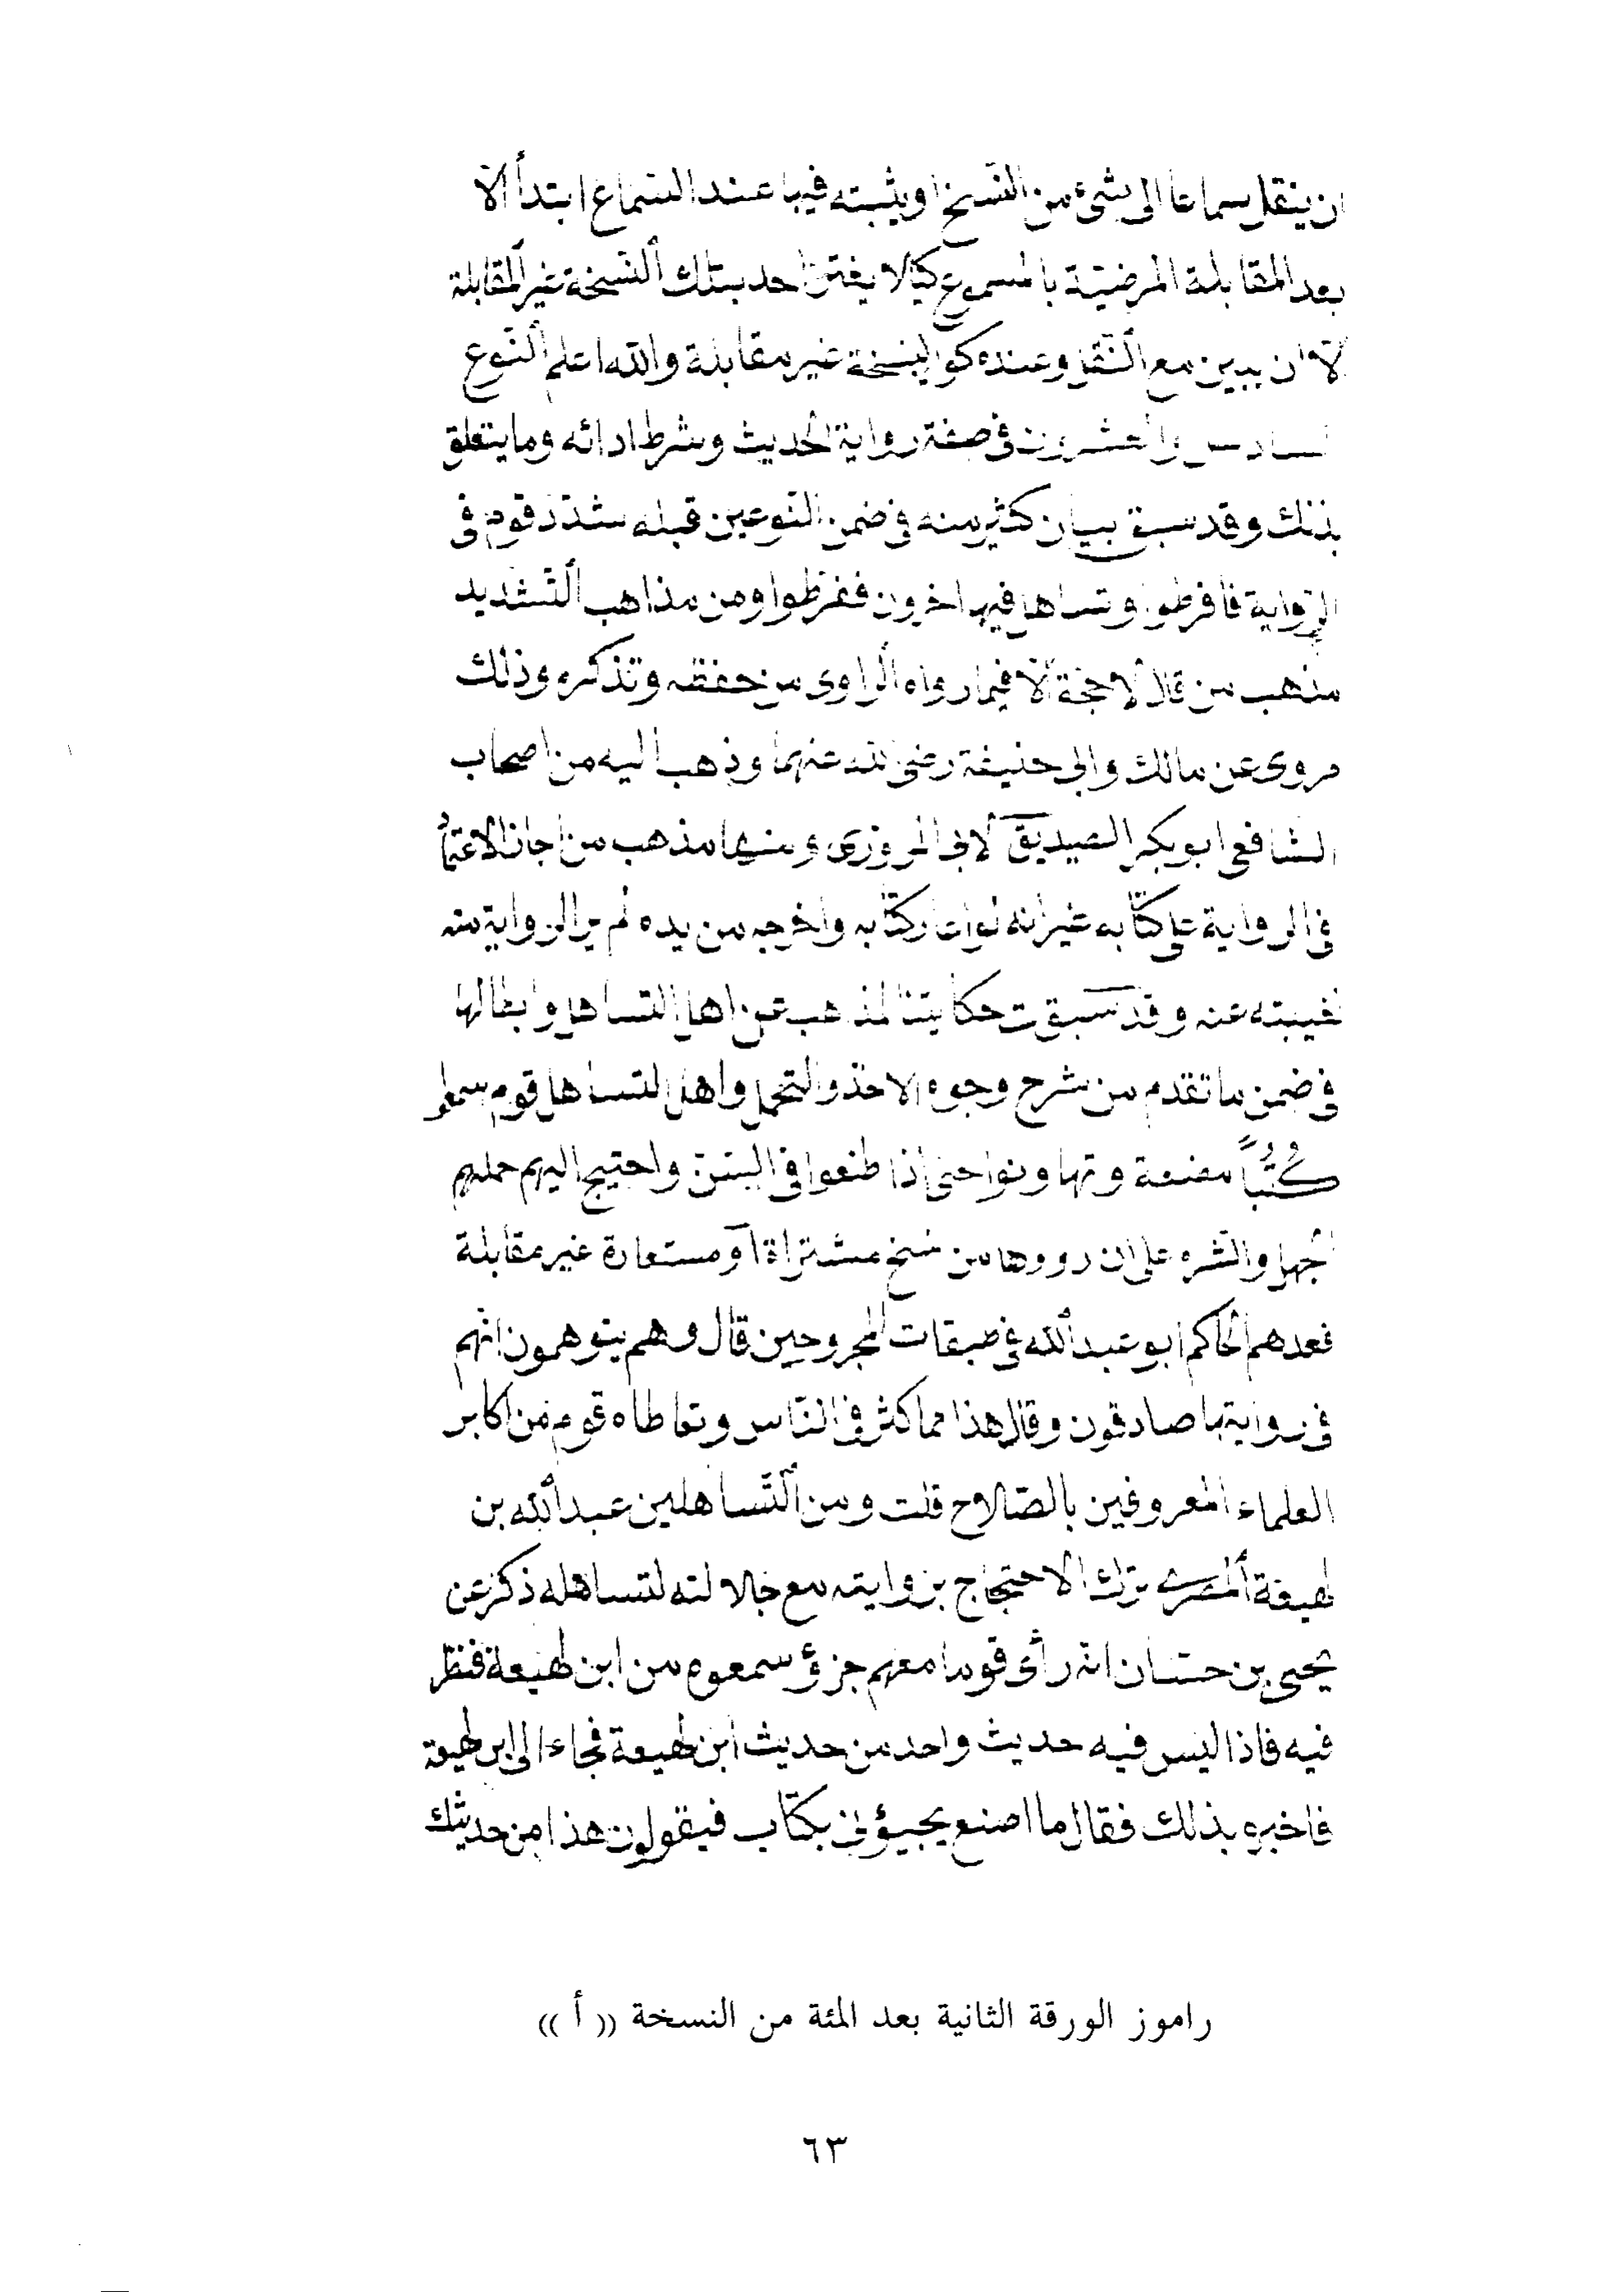 ان ينقل سماعا الى شئ من النسخ او يثبته فيها عند السماع ابتدأ الا
بعد المقابلة المرضية بالمسموع كيلا يغتر احد بتلك النسخة غير المقابلة
الا ان يبين مع النقل وعنده كون النسخة غير مقابلة والله اعلم النوع
السادس والعشرون فى صفة رواية الحديث وشرط ادائه وما يتعلق
بذلك وقد سبق بيان كثير منه فى ضمن النوعين قبله شدد قوم فى
الرواية فافرطوا وتساهل فيها اخرون ففرطوا ومن مذاهب التشديد
مذهب من قال لا حجة الا فيما رواه الراوى من حفظه وتذكره وذلك
مروى عن مالك وابى حنيفة رضى الله عنهما وذهب اليه من اصحاب
الشافعى ابو بكر الصيدلانى المروزى ومنها مذهب من اجاز الاعتماد
فى الرواية على كتابه غير انه لو اعار كتابه واخرجه من يده لم ير الرواية منه
لغيبته عنه وقد سبقت حكايتنا لمذهب عن اهل التساهل وابطالها
فى ضمن ما تقدم من شرح وجوه الاخذ والتحمل واهل التساهل قوم سمعوا
كُتُبًا مصنعة وتهاونوا حتى اذا طعنوا فى السن واحتيج اليهم حملهم
الجهل والشره على ان رووها من نسخ مشتراة او مستعارة غير مقابلة
فعدهم الحاكم ابو عبد الله فى طبقات المجروحين قال وهم يتوهمون انهم
فى روايتها صادقون وقال هذا مما كثر فى الناس وتعاطاه قوم من اكابر
العلماء المعروفين بالصلاح قلت ومن المتساهلين عبد الله بن
لهيعة المصرى ترك الاحتجاج بروايته مع جلالته لتساهله ذكر عن
يحيى بن حسان انه رأى قوما معهم جزؤ سمعوه من ابن لهيعة فنظر
فيه فاذا ليس فيه حديث واحد من حديث ابن لهيعة فجاء الى ابن لهيعة
فاخبره بذلك فقال ما اصنع يجيؤنى بكتاب فيقولون هذا من حديثك
راموز الورقة الثانية بعد المئة من النسخة (( أ ))
٦٣